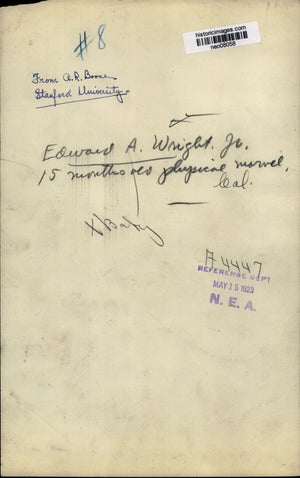 historicimages.com
neo08058
#8
From A.R. Boone
Stanford University
Edward A. Wright Jr.
15 months old physical marvel,
Cal.
X Baby
A 4447
REFERENCE DEPT
MAY 15 1923
N. E. A.